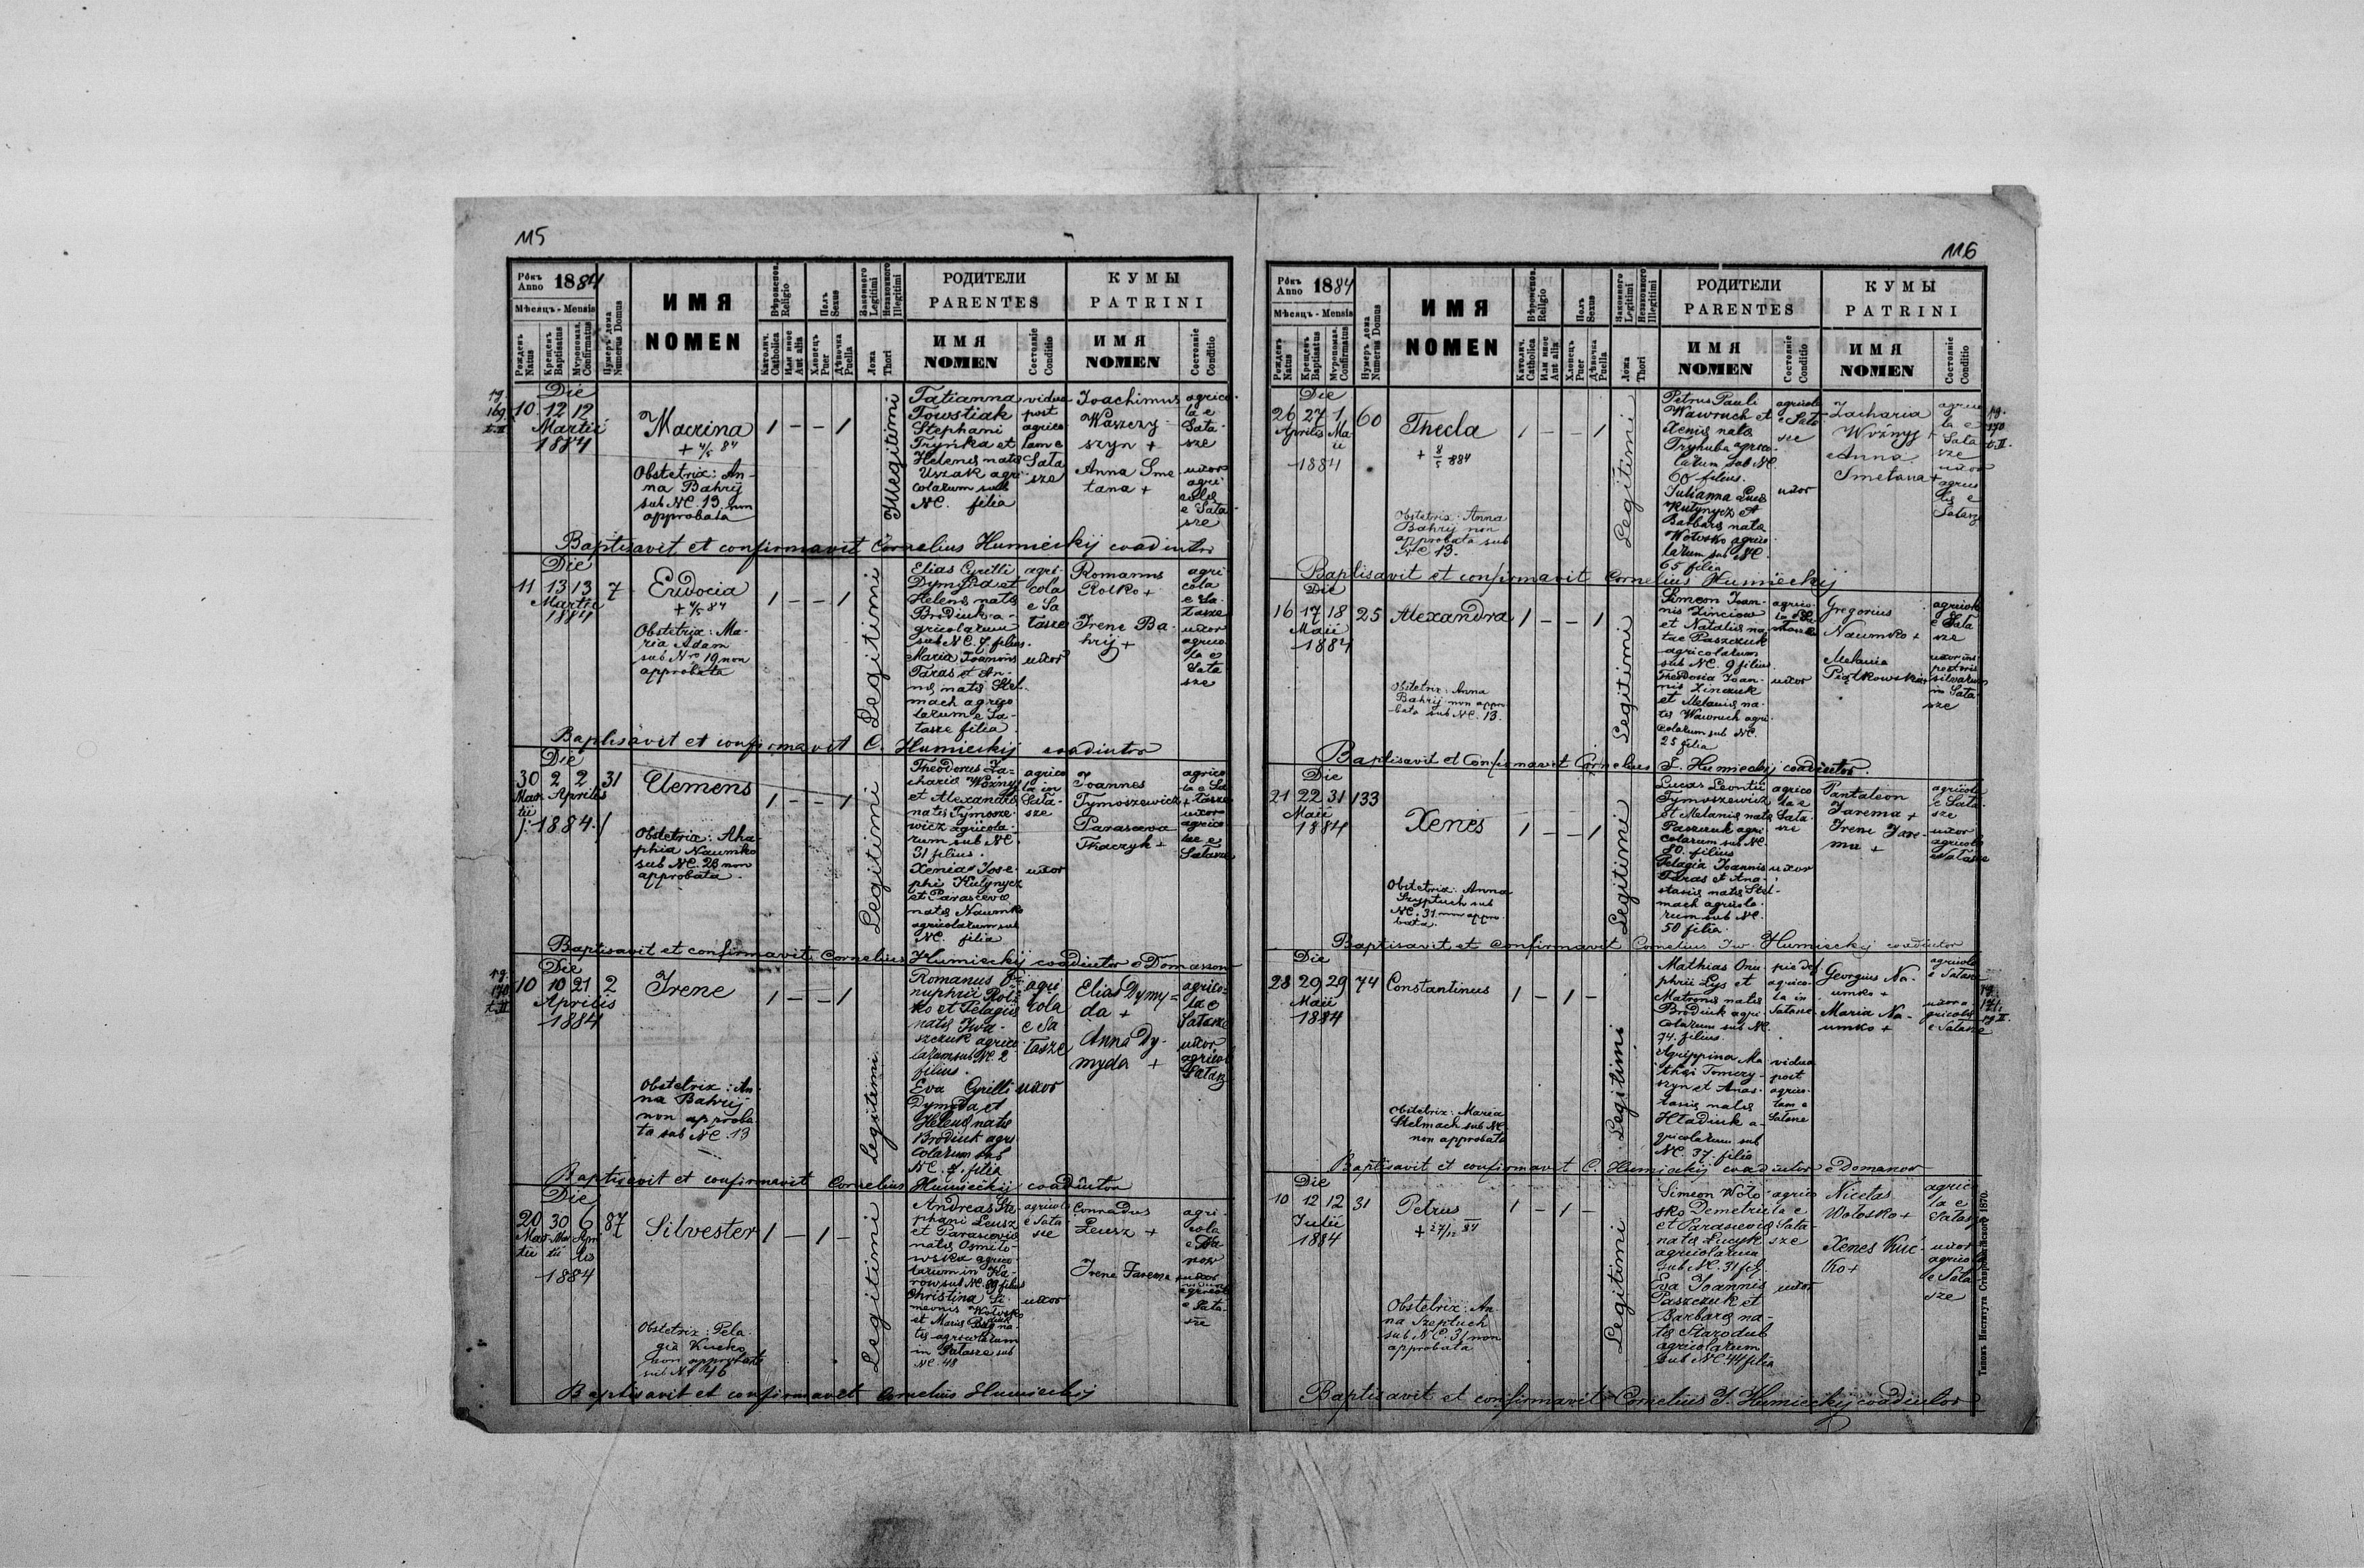 115
Рôкъ Anno 1884
Мѣсяцъ - Mensis
Рождень Natus
Крещенъ Baptisatus
Мѵропомаз. Confirmatus
Нумеръ дома Numerus Domus
ИМЯ
NOMEN
Вѣроиспов. Religio
Католич. Catholica
Или иное Aut alia
Полъ Sexus
Хлопецъ Puer
Дѣвочка Puella
Законного Legitimi
Незаконного Illegitimi
Ложа Thori
РОДИТЕЛИ
PARENTES
ИМЯ
NOMEN
Состояніе Conditio
КУМЫ
PATRINI
ИМЯ
NOMEN
Состояніе Conditio
pg.
169
t. II
Die
10 12 12
Martii
1884
Macrina
+ 4/5 84
Obstetrix: An-
na Bahrij
sub NC. 13 non
approbata
1 - - 1
Illegitimi
Tatianna
Towstiak
Stephani
Tryńska et
Helenæ natæ
Uszak agri-
colarum sub
NC. filia
vidua
post
agrico
lam e
Sata
sze
Joachimus
Waszczy-
szyn +
Anna Sme
tana +
agrico-
la e
Sata-
sze
uxor
agri
colæ
e Sata-
sze
Baptisavit et confirmavit Cornelius Humieckij coadiutor
Die
11 13 13 7
Martii
1884
Eudocia
+ 4/5 84
Obstetrix: Ma-
ria Adam
sub Nro 19 non
approbata
1 - - 1
Legitimi
Elias Cyrilli
Dymyda et
Helenæ natæ
Brodiuk a-
gricolarum
sub NC. 7 filius.
Maria Joannis
Taras et An-
næ natæ Stel-
mach agrico
larum e Sa-
tasze filia
agri-
cola
e Sa
tasze
uxor
Romanus
Rotko +
Irene Ba-
hrij +
agri
cola
e Sa-
tasze
uxor
agrico
la e
Sata
sze
Baptisavit et confirmavit C. Humieckij coadiutor
Die
30 2 2 31
Mar Aprilis
tii
/: 1884 :/
Clemens
Obstetrix: Aha
phia Naumko
sub NC. 26 non
approbata
1 - - 1
Legitimi
Theodorus Za-
chariæ Woźnyj
et Alexandræ
natæ Tymosze-
wicz agricola-
rum sub NC.
31 filius.
Xenia Jose-
phi Kutynycz
et Parascevæ
natæ Naumko
agricolarum sub
NC. filia
agrico
la in
Sata-
sze
uxor
Joannes
Tymoszewicz +
Parasceva
Tkaczyk +
agrico
la e Sa
tasze
uxor
agrico
læ e
Satasze
Baptisavit et confirmavit Cornelius Humieckij coadiutor e Domaszow
pg.
170
t. II
Die
10 10 21 2
Aprilis
1884
Irene
Obstetrix: An-
na Bahrij
non approba
ta sub NC. 13
1 - - 1
Legitimi
Romanus O-
nuphrii Rot
ko et Pelagiæ
natæ Iwa-
szczuk agrico
larum sub NC. 2
filius.
Eva Cyrilli
Dymyda et
Helenæ natæ
Brodiuk agri
colarum sub
NC. 7. filia
agri
cola
e Sa-
tasze
uxor
Elias Dymy-
da +
Anna Dy-
myda +
agrico-
la e
Satasze
uxor
agricol
Satasz
Baptisavit et confirmavit Cornelius Humieckij coadiutor
Die
20 30 6 87
Mar Mar Apri
tii tii lis
1884
Silvester
Obstetrix: Pela
gia Kucko
non approbata
sub NC 46
1 - 1 -
Legitimi
Andreas Ste-
phani Leusz
et Parascevæ
natæ Osmilo-
wska agrico
larum in Ka-
row sub NC. 89 filius
Christina Si-
meonis Wołosko
et Mariæ na-
tæ agricolarum
in Satasze sub
NC. 48
agricola
e Sata
sze
uxor
Conradus
Leusz +
Irene Jarema +
agri-
cola
uxor
agricolæ
e Sata-
sze
Baptisavit et confirmavit Cornelius Humieckij
116
Рôкъ Anno 1884
Мѣсяцъ - Mensis
Рождень Natus
Крещенъ Baptisatus
Мѵропомаз. Confirmatus
Нумеръ дома Numerus Domus
ИМЯ
NOMEN
Вѣроиспов. Religio
Католич. Catholica
Или иное Aut alia
Полъ Sexus
Хлопецъ Puer
Дѣвочка Puella
Законного Legitimi
Незаконного Illegitimi
Ложа Thori
РОДИТЕЛИ
PARENTES
ИМЯ
NOMEN
Состояніе Conditio
КУМЫ
PATRINI
ИМЯ
NOMEN
Состояніе Conditio
Die
26 27 1 60
Aprilis Ma-
ii
1884
Thecla
+ 8/5 884
Obstetrix: Anna
Bahrij non
approbata sub
NC 13.
1 - - 1
Legitimi
Petrus Pauli
Wawruch et
Xeniæ natæ
Tryhuba agrico-
larum sub NC.
60 filius.
Julianna Lucæ
Kutynycz et
Barbaræ natæ
Wołosko agrico-
larum sub NC.
65 filia
agricola
e Sata
sze
uxor
Zacharia
Woźnyj +
Anna
Smetana +
agrico
la e
Sata
sze
uxor
agrico
læ e
Satasz
pg.
170
t. II.
Baptisavit et confirmavit Cornelius Humieckij
Die
16 17 18 25
Maii
1884
Alexandra
Obstetrix: Anna
Bahrij non appro
bata sub NC. 13.
1 - - 1
Legitimi
Simeon Joan-
nis Zinciow
et Nataliæ na-
tae Paszczuk
agricolarum
sub NC. 9 filius.
Theodosia Joan-
nis Zinczuk
et Melaniæ na-
tæ Wawruch agri-
colarum sub NC.
25 filia
agrico-
la e Sa-
tasze
uxor
Gregorius
Naumko +
Melania
Piątkowska +
agricola
e Sata
sze
uxor ins-
pectoris
silvarum
in Sata-
sze
Baptisavit et Confirmavit Cornelius I. Humieckij coadiutor.
Die
21 22 31 133
Maii
1884
Xenes
Obstetrix: Anna
Szeptuch sub
NC. 31 non appro-
bata.
1 - - 1
Legitimi
Lucas Leontii
Tymoszewicz
et Melaniæ natæ
Paszczuk agri-
colarum sub NC.
80. filius
Pelagia Joannis
Taras et Ana-
stasiæ natæ Stel-
mach agricola-
rum sub NC.
50 filia.
agrico
la e
Sata-
sze
uxor
Pantaleon
Jarema +
Irene Jare-
ma +
agricola
e Sata-
sze
uxor
agricolæ
e Satasze
Baptisavit et confirmavit Cornelius Iw. Humieckij coadiutor
Die
28 29 29 74
Maii
1884
Constantinus
Obstetrix: Maria
Stelmach sub NC.
non approbata
1 - 1 -
Legitimi
Mathias Onu-
phrii Lys et
Matronæ natæ
Brodiuk agri-
colarum sub NC.
74. filius.
Agrippina Ma
thæi Tomczy-
szyn et Anas-
tasiæ natæ
Hładiuk a-
gricolarum sub
NC. 37. filia
pie def.
agrico-
la in
Satasze
vidua
post
agrico-
lam e
Satasze
Georgius Na-
umko +
Maria Na-
umko +
agricola
e Satasze
uxor a-
gricolæ
e Satasze
pg.
171.
t. II.
Baptisavit et confirmavit C. Humieckij coadiutor e Domaszow
Die
10 12 12 31
Julii
1884
Petrus
+ 27/12 84
Obstetrix: An-
na Szeptuch
sub NC. 31 non
approbata
1 - 1 -
Legitimi
Simeon Woło-
sko Demetrii
et Parascevæ
natæ Lucyk
agricolarum
sub NC. 31 fil.
Eva Joannis
Paszczuk et
Barbaræ na-
tæ Starodub
agricolarum
sub NC. 44 filia
agrico
la e
Sata-
sze
uxor
Nicetas
Wołosko +
Xenes Kuc-
ko +
agrico
la e
Satasz
uxor
agricolæ
e Sata
sze
Baptisavit et confirmavit Cornelius I. Humieckij coadiutor
Типомъ Института Ставропигійского 1870.